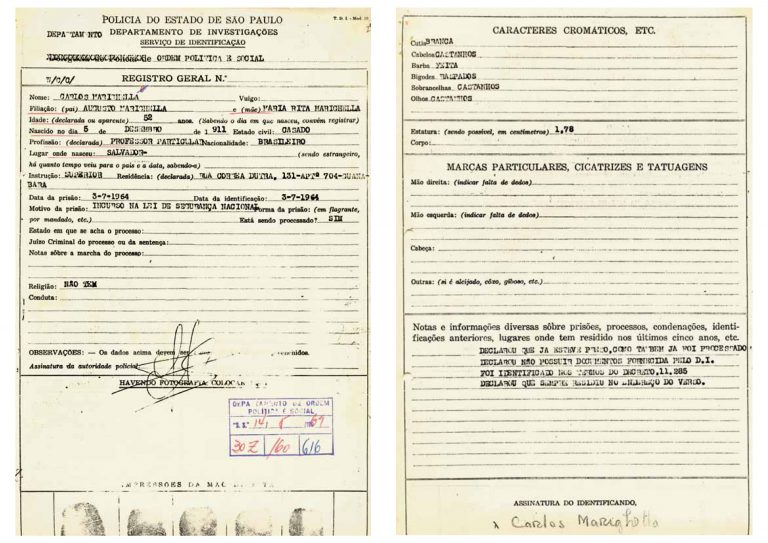 POLICIA DO ESTADO DE SÃO PAULO
T. D. I. - Mod. 10
DEPARTAMENTO DEPARTAMENTO DE INVESTIGAÇÕES
SERVIÇO DE IDENTIFICAÇÃO
de ORDEM POLITICA E SOCIAL
REGISTRO GERAL N.º
Nome: CARLOS MARIGHELLA Vulgo:
Filiação: (pai) AUGUSTO MARIGHELLA e (mãe) MARIA RITA MARIGHELLA
Idade: (declarada ou aparente) 52 anos. (Sabendo o dia em que nasceu, convém registrar)
Nascido no dia 5 de DEZEMBRO de 1 911 Estado civil: CASADO
Profissão: (declarada) PROFESSOR PARTICULAR Nacionalidade: BRASILEIRO
Lugar onde nasceu: SALVADOR- (sendo estrangeiro,
há quanto tempo veiu para o país e a data, sabendo-a)
Instrução: SUPERIOR Residência: (declarada) RUA CORREA DUTRA, 131-APTº 704-GUANA-
BARA
Data da prisão: 3-7-1964 Data da identificação: 3-7-1964
Motivo da prisão: INCURSO NA LEI DE SEGURANÇA NACIONAL Forma da prisão: (em flagrante,
por mandado, etc.) Está sendo processado? SIM
Estado em que se acha o processo:
Juizo Criminal do processo ou da sentença:
Notas sôbre a marcha do processo:
Religião: NÃO TEM
Conduta:
OBSERVAÇÕES: — Os dados acima devem ser
Assinatura da autoridade policial
HAVENDO FOTOGRAFIA COLOCAR
DEPARTAMENTO DE ORDEM
POLÍTICA E SOCIAL
"S. S." 14
30Z /60 616
IMPRESSÕES DA MÃO
CARACTERES CROMATICOS, ETC.
Cutis BRANCA
Cabelos CASTANHOS
Barba FEITA
Bigodes RASPADOS
Sobrancelhas CASTANHOS
Olhos CASTANHOS
Estatura: (sendo possivel, em centimetros) 1,78
Corpo:
MARCAS PARTICULARES, CICATRIZES E TATUAGENS
Mão direita: (indicar falta de dedos)
Mão esquerda: (indicar falta de dedos)
Cabeça:
Outras: (si é aleijado, côxo, giboso, etc.)
Notas e informações diversas sôbre prisões, processos, condenações, identi-
ficações anteriores, lugares onde tem residido nos últimos cinco anos, etc.
DECLAROU QUE JA ESTEVE PRESO, COMO TAMBEM JA FOI PROCESSADO
DECLAROU NÃO POSSUIR DOCUMENTOS FORNECIDA PELO D.I.
FOI IDENTIFICADO NOS TERMOS DO DECRETO, 11.285
DECLAROU QUE SEMPRE RESIDIU NO ENDEREÇO DO VERSO.
ASSINATURA DO IDENTIFICANDO,
x Carlos Marighella